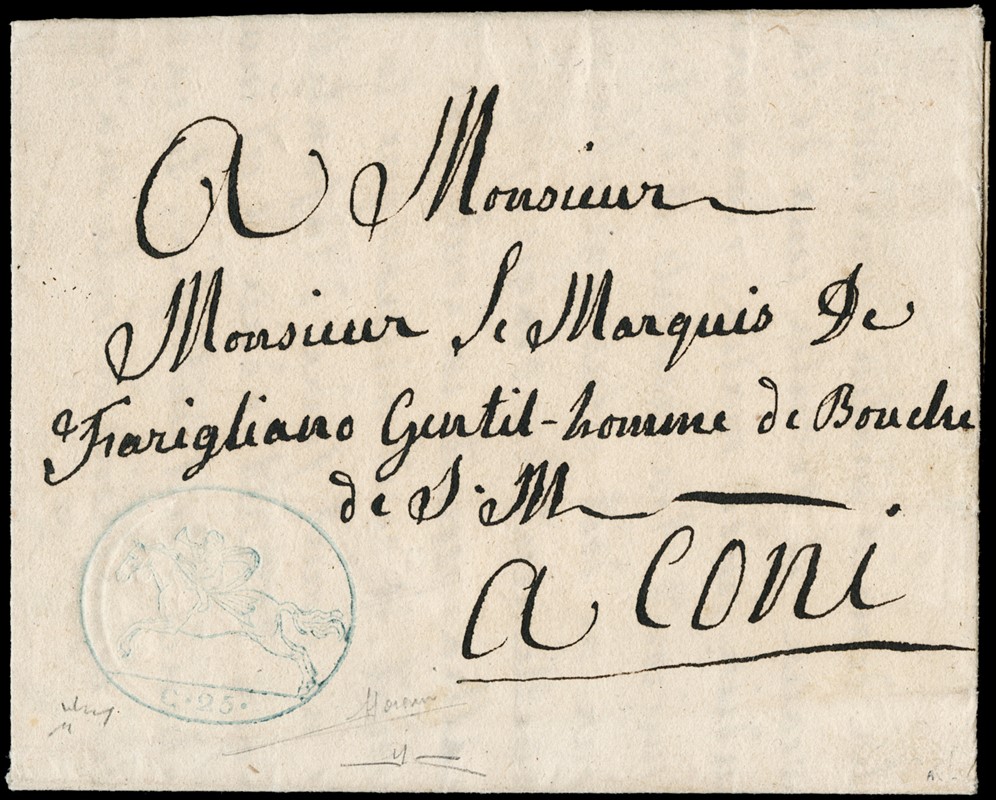 A Monsieur
Monsieur Le Marquis De
Farigliano Gentil-homme de Bouche
de S. M
a Coni
C. 25.